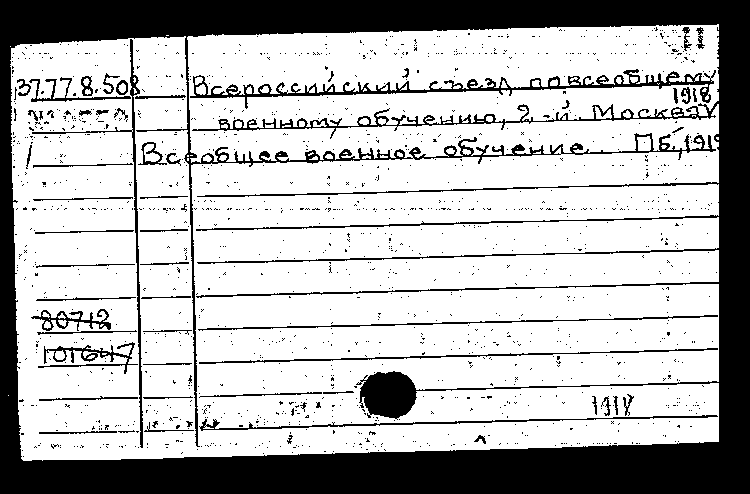 37.77.8.508
Всероссийский съезд по всеобщему
военному обучению, 2-й. Москва.
1918
Всеобщее военное обучение. Пб., 191
80712
101647
1918